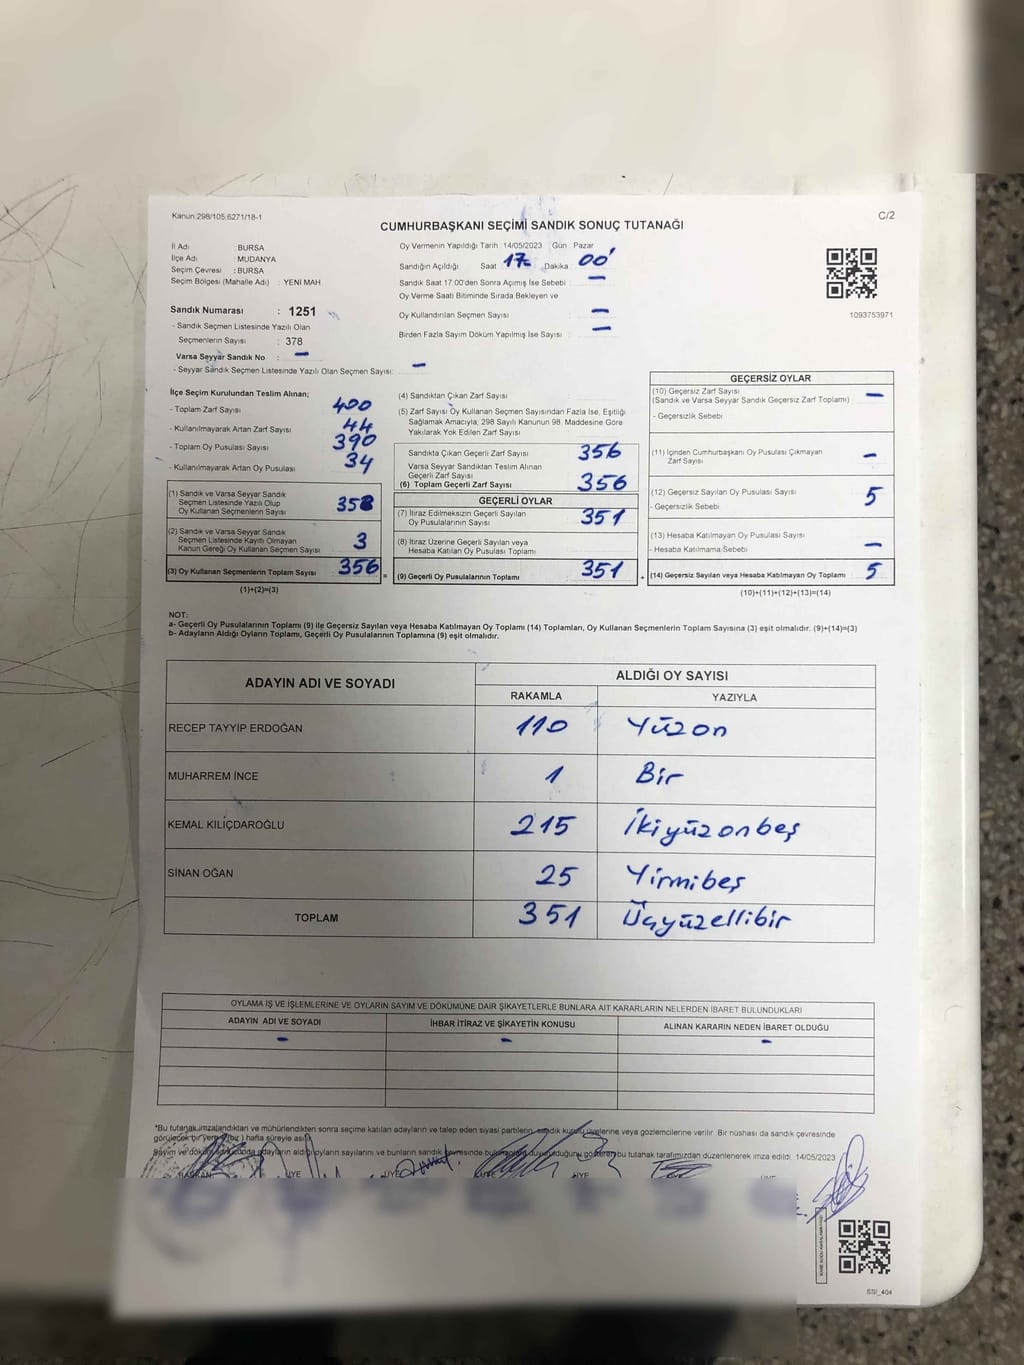 Kanun:298/105,6271/18-1
C/2
CUMHURBAŞKANI SEÇİMİ SANDIK SONUÇ TUTANAĞI
İl Adı : BURSA
İlçe Adı : MUDANYA
Seçim Çevresi : BURSA
Seçim Bölgesi (Mahalle Adı) : YENİ MAH
Sandık Numarası : 1251
- Sandık Seçmen Listesinde Yazılı Olan
Seçmenlerin Sayısı : 378
Varsa Seyyar Sandık No : –
- Seyyar Sandık Seçmen Listesinde Yazılı Olan Seçmen Sayısı: –
Oy Vermenin Yapıldığı Tarih : 14/05/2023 Gün : Pazar
Sandığın Açıldığı Saat 17- Dakika 00'
Sandık Saat 17.00'den Sonra Açımış İse Sebebi : –
Oy Verme Saati Bitiminde Sırada Bekleyen ve
Oy Kullandırılan Seçmen Sayısı : –
Birden Fazla Sayım Döküm Yapılmış İse Sayısı : –
1093753971
İlçe Seçim Kurulundan Teslim Alınan;
- Toplam Zarf Sayısı 400
- Kullanılmayarak Artan Zarf Sayısı 44
- Toplam Oy Pusulası Sayısı 390
- Kullanılmayarak Artan Oy Pusulası 34
(1) Sandık ve Varsa Seyyar Sandık
Seçmen Listesinde Yazılı Olup
Oy Kullanan Seçmenlerin Sayısı
(2) Sandık ve Varsa Seyyar Sandık
Seçmen Listesinde Kayıtlı Olmayan
Kanun Gereği Oy Kullanan Seçmen Sayısı 3
(3) Oy Kullanan Seçmenlerin Toplam Sayısı 356 =
(1)+(2)=(3)
(4) Sandıktan Çıkan Zarf Sayısı
(5) Zarf Sayısı Oy Kullanan Seçmen Sayısından Fazla İse, Eşitliği
Sağlamak Amacıyla, 298 Sayılı Kanunun 98. Maddesine Göre
Yakılarak Yok Edilen Zarf Sayısı
Sandıkta Çıkan Geçerli Zarf Sayısı 356
Varsa Seyyar Sandıktan Teslim Alınan
Geçerli Zarf Sayısı
(6) Toplam Geçerli Zarf Sayısı 356
GEÇERLİ OYLAR
(7) İtiraz Edilmeksizin Geçerli Sayılan
Oy Pusulalarının Sayısı 351
(8) İtiraz Üzerine Geçerli Sayılan veya
Hesaba Katılan Oy Pusulası Toplamı
(9) Geçerli Oy Pusulalarının Toplamı 351 +
GEÇERSİZ OYLAR
(10) Geçersiz Zarf Sayısı
(Sandık ve Varsa Seyyar Sandık Geçersiz Zarf Toplamı) –
- Geçersizlik Sebebi
(11) İçinden Cumhurbaşkanı Oy Pusulası Çıkmayan
Zarf Sayısı –
(12) Geçersiz Sayılan Oy Pusulası Sayısı 5
- Geçersizlik Sebebi
(13) Hesaba Katılmayan Oy Pusulası Sayısı
- Hesaba Katılmama Sebebi –
(14) Geçersiz Sayılan veya Hesaba Katılmayan Oy Toplamı 5
(10)+(11)+(12)+(13)=(14)
NOT:
a- Geçerli Oy Pusulalarının Toplamı (9) ile Geçersiz Sayılan veya Hesaba Katılmayan Oy Toplamı (14) Toplamları, Oy Kullanan Seçmenlerin Toplam Sayısına (3) eşit olmalıdır. (9)+(14)=(3)
b- Adayların Aldığı Oyların Toplamı, Geçerli Oy Pusulalarının Toplamına (9) eşit olmalıdır.
ADAYIN ADI VE SOYADI
ALDIĞI OY SAYISI
RAKAMLA YAZIYLA
RECEP TAYYİP ERDOĞAN 110 Yüzon
MUHARREM İNCE 1 Bir
KEMAL KILIÇDAROĞLU 215 İkiyüzonbeş
SİNAN OĞAN 25 Yirmibeş
TOPLAM 351 Üçyüzellibir
OYLAMA İŞ VE İŞLEMLERİNE VE OYLARIN SAYIM VE DÖKÜMÜNE DAİR ŞİKAYETLERLE BUNLARA AİT KARARLARIN NELERDEN İBARET BULUNDUKLARI
ADAYIN ADI VE SOYADI İHBAR İTİRAZ VE ŞİKAYETİN KONUSU ALINAN KARARIN NEDEN İBARET OLDUĞU
– – –
*Bu tutanak imzalandıktan ve mühürlendikten sonra seçime katılan adayların ve talep eden siyasi partilerin, sandık kurulu üyelerine veya gözlemcilerine verilir. Bir nüshası da sandık çevresinde
görülecek bir yere (bir) hafta süreyle asılır.
Sayım ve döküm sonucunda adayların aldığı oyların sayılarını ve bunların sandık çevresinde bulunanlara duyurulduğunu gösteren bu tutanak tarafımızdan düzenlenerek imza edildi. 14/05/2023
BAŞKAN ÜYE ÜYE ÜYE
SSI_404